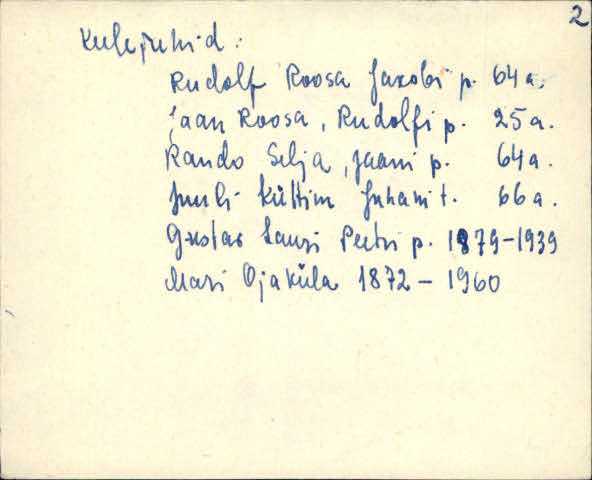 2
Keelejuhid:
Rudolf Roosa Jakobi p. 64 a.
Jaan Roosa, Rudolfi p. 25 a.
Rando Selja, Jaani p. 64 a.
Juuli Küttim Juhani t. 66 a.
Gustav Lauri Peetri p. 1879-1939
Mari Ojaküla 1872 - 1960